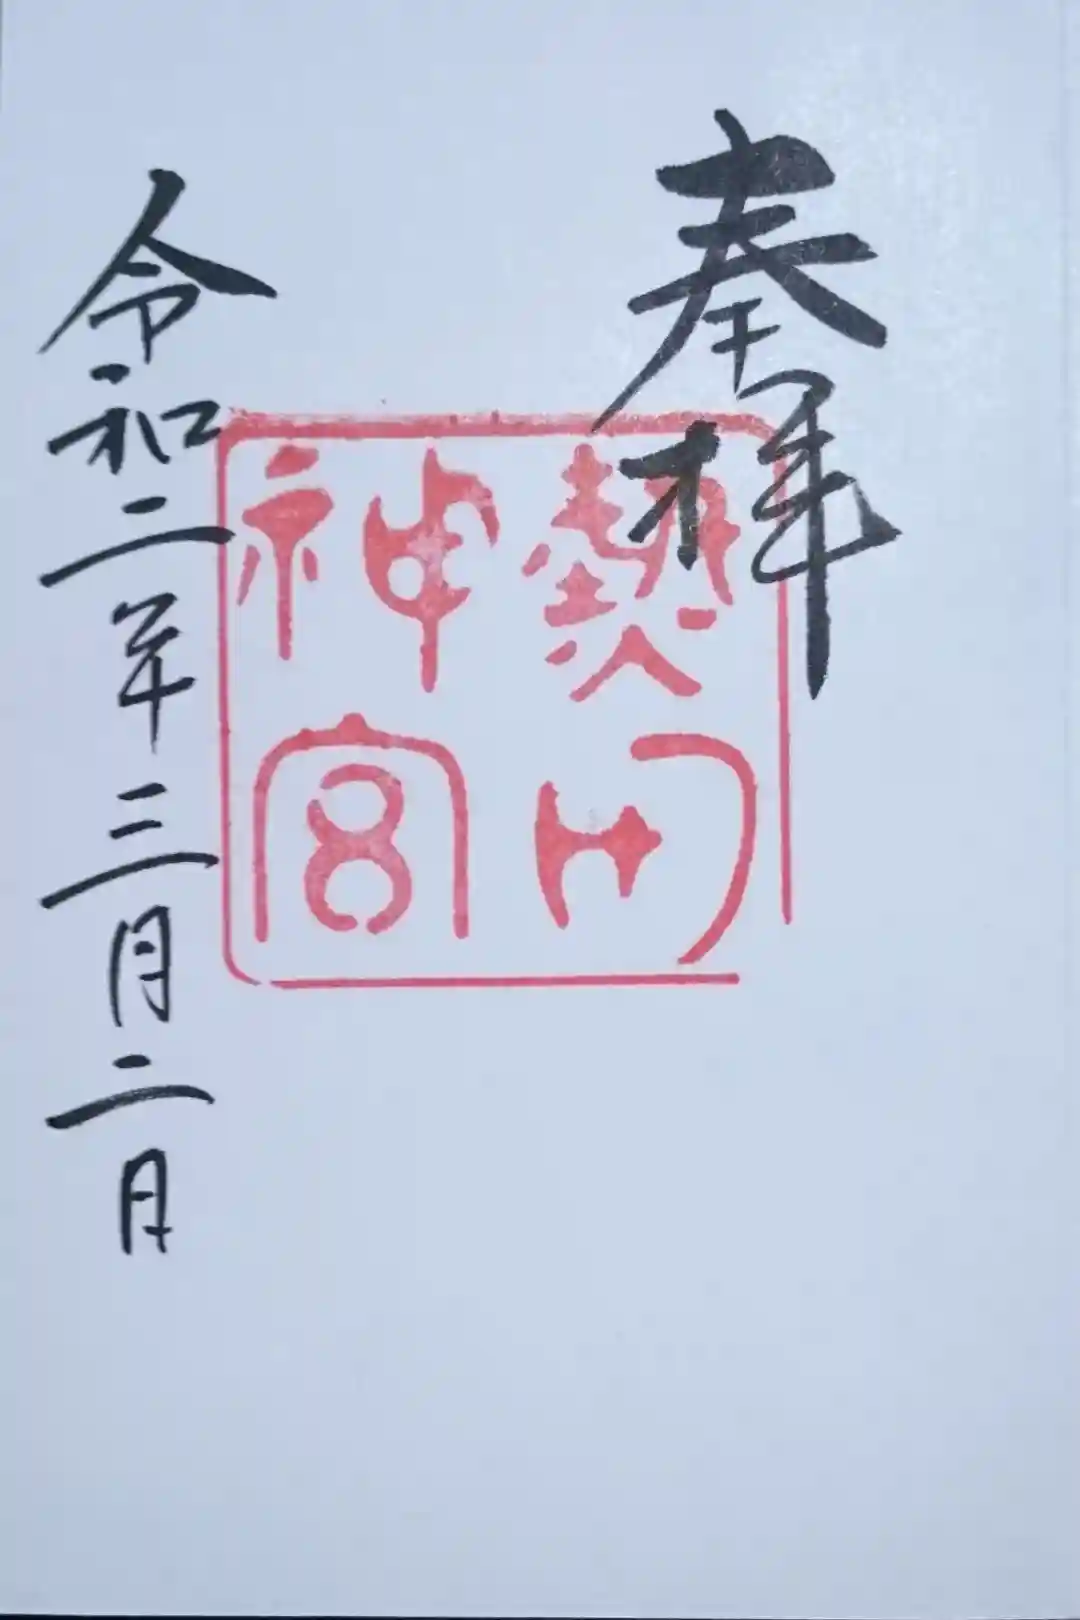 奉拝
熱田
神宮
令和二年三月二日